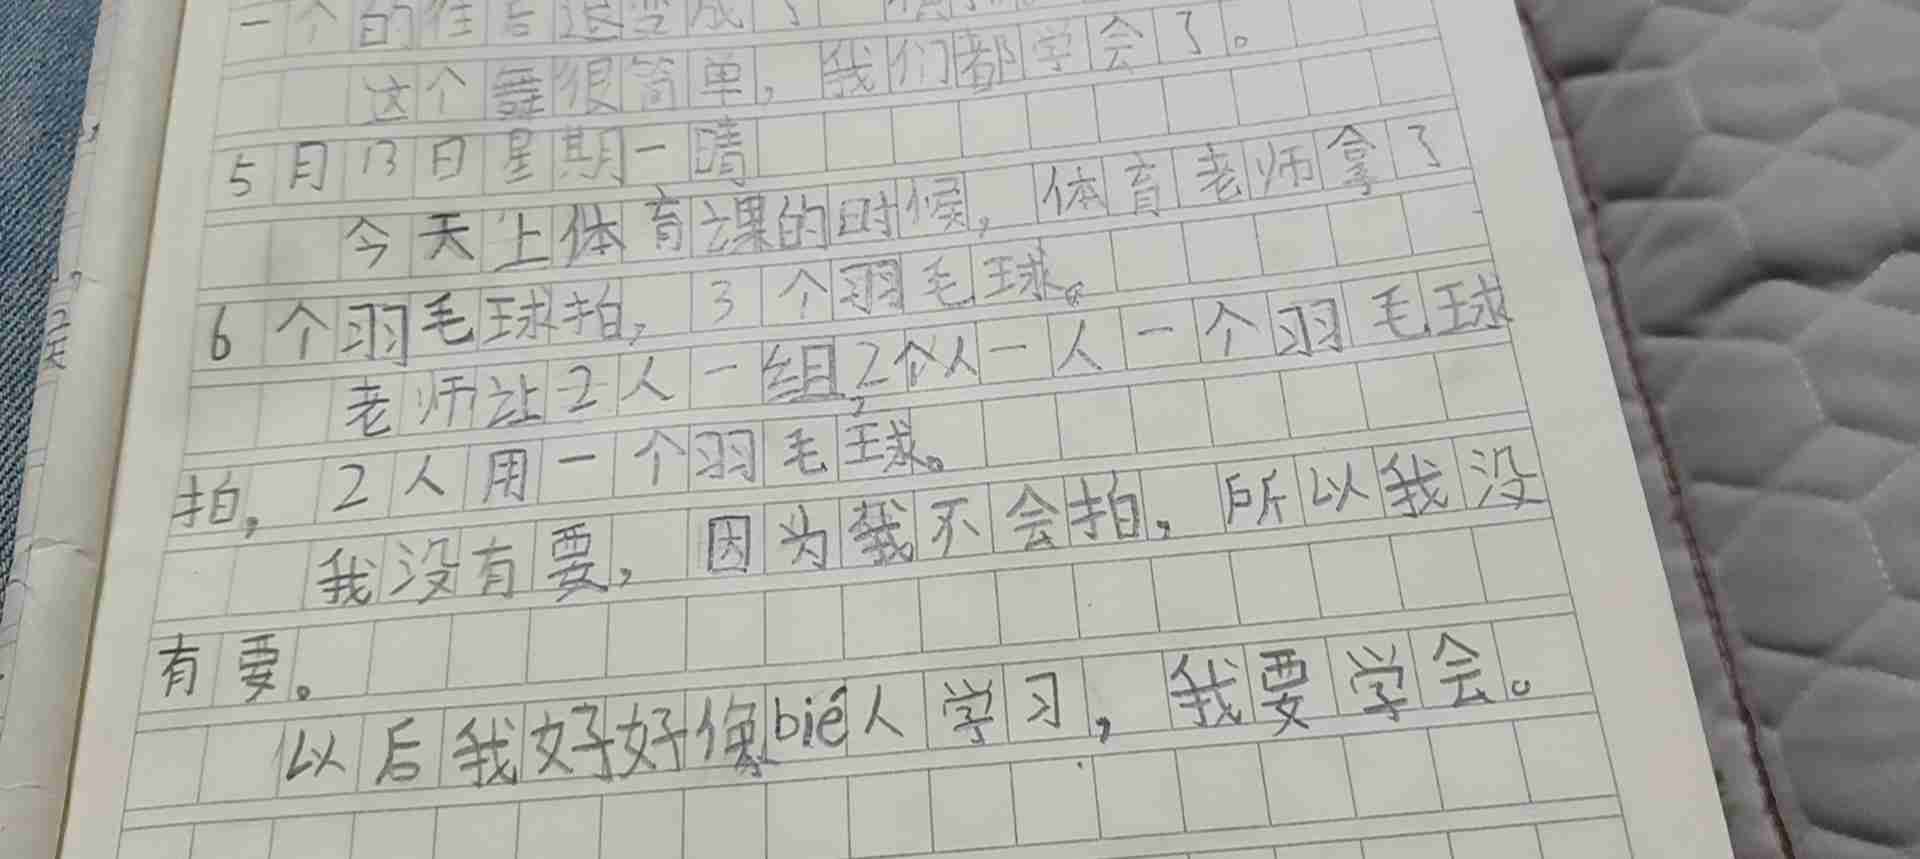 一个的往后退变成了
这个舞很简单，我们都学会了。
5月13日星期一晴
今天上体育课的时候，体育老师拿了
6个羽毛球拍，3个羽毛球。
老师让2人一组，2个人一人一个羽毛球
拍，2人用一个羽毛球。
我没有要，因为我不会拍，所以我没
有要。
以后我好好像bié人学习，我要学会。